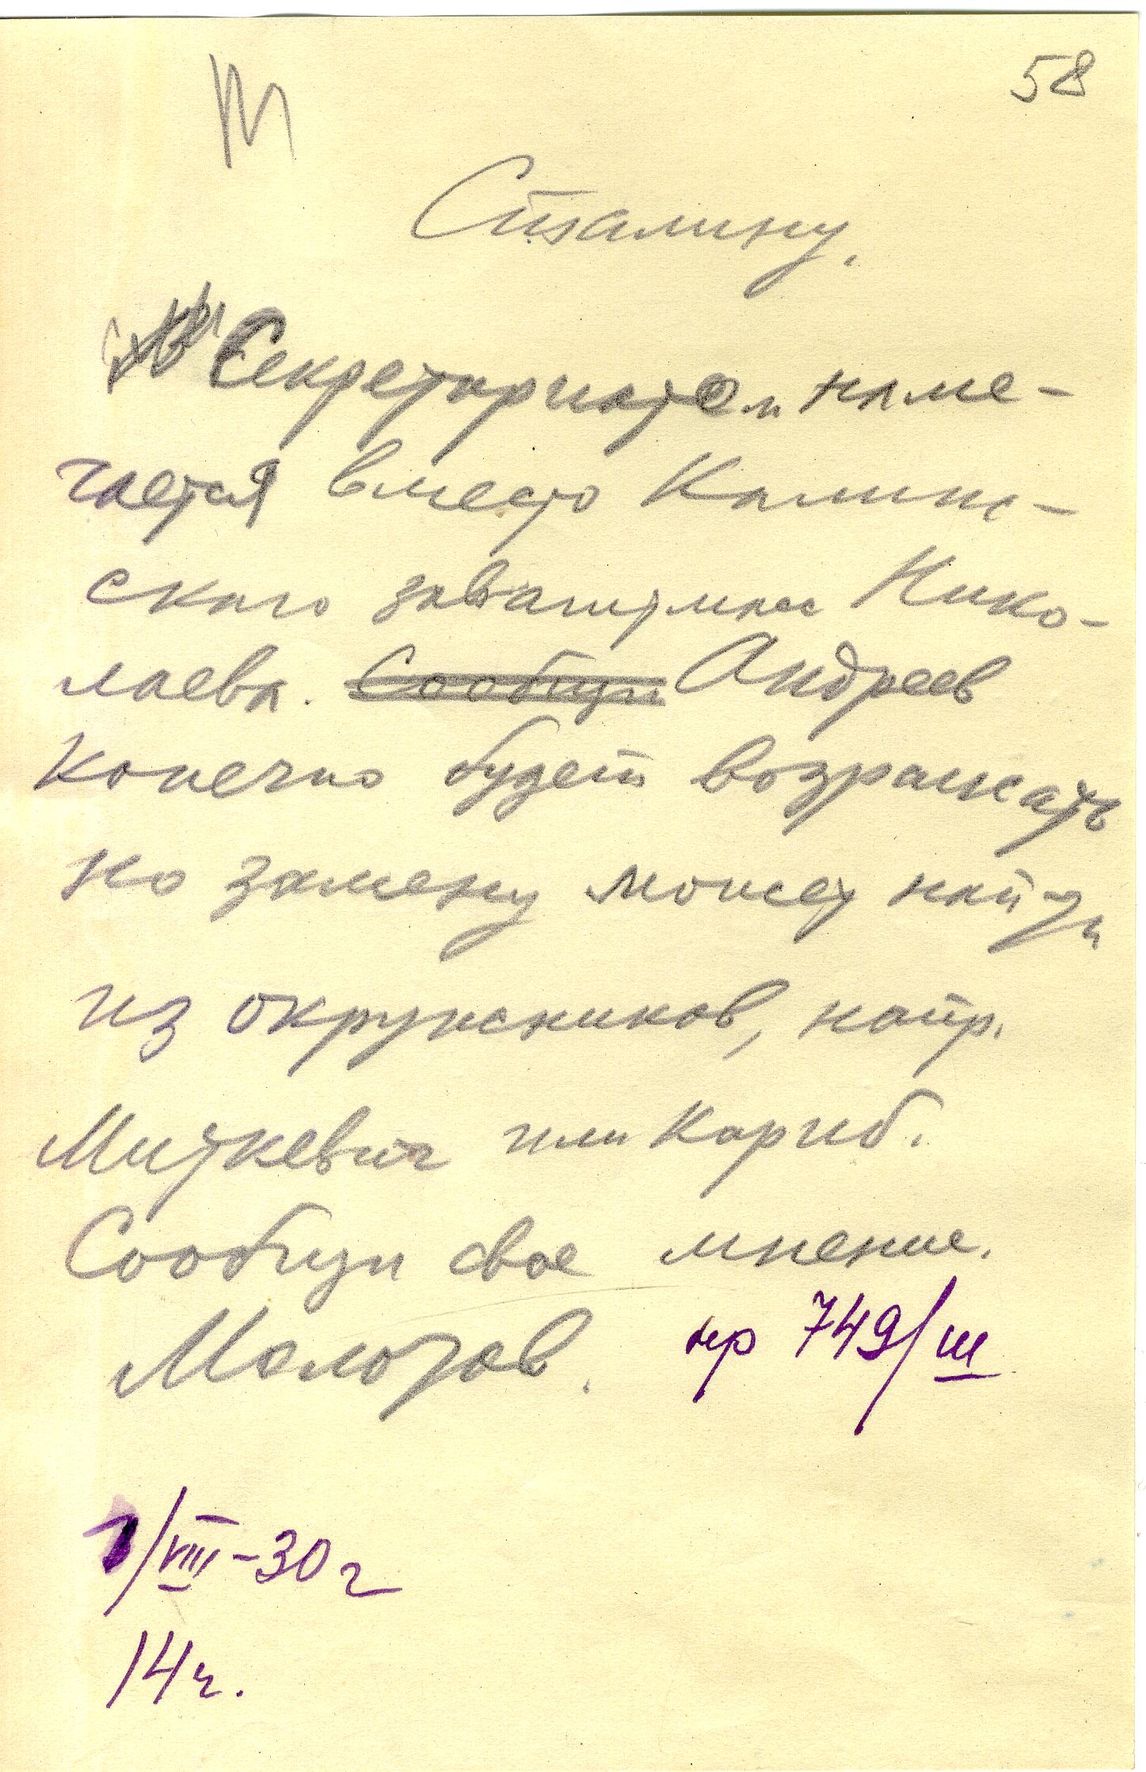 58
Сталину.
Секретариатом наме-
чается вместо Камин-
ского завагитмасс Нико-
лаева. Сообщи Андреев
конечно будет возражать
но замену может найти
из окружников, напр.
Миткевич или Кариб.
Сообщи свое мнение.
Молотов. нр 749/ш
/VIII-30г
14ч.